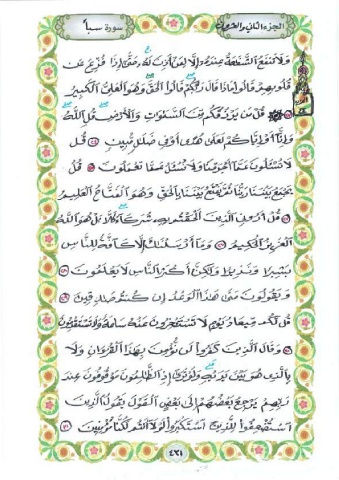 الجزء الثاني والعشرون سورة سبأ
ولا تنفع الشفعة عنده إلا لمن أذن له حتى إذا فزع عن
قلوبهم قالوا ماذا قال ربكم قالوا الحق وهو العلي الكبير
قل من يرزقكم من السموات والأرض قل الله
وإنا أو إياكم لعلى هدى أو في ضلل مبين ٢٤ قل
لا تسئلون عما أجرمنا ولا نسئل عما تعملون ٢٥ قل
يجمع بيننا ربنا ثم يفتح بيننا بالحق وهو الفتاح العليم
قل أروني الذين ألحقتم به شركاء كلا بل هو الله
العزيز الحكيم ٢٧ وما أرسلنك إلا كافة للناس
بشيرا ونذيرا ولكن أكثر الناس لا يعلمون ٢٨
ويقولون متى هذا الوعد إن كنتم صدقين ٢٩
قل لكم ميعاد يوم لا تستخرون عنه ساعة ولا تستقدمون
٣٠ وقال الذين كفروا لن نؤمن بهذا القرءان ولا
بالذي بين يديه ولو ترى إذ الظلمون موقوفون عند
ربهم يرجع بعضهم إلى بعض القول يقول الذين
استضعفوا للذين استكبروا لولا أنتم لكنا مؤمنين ٣١
٤٣١